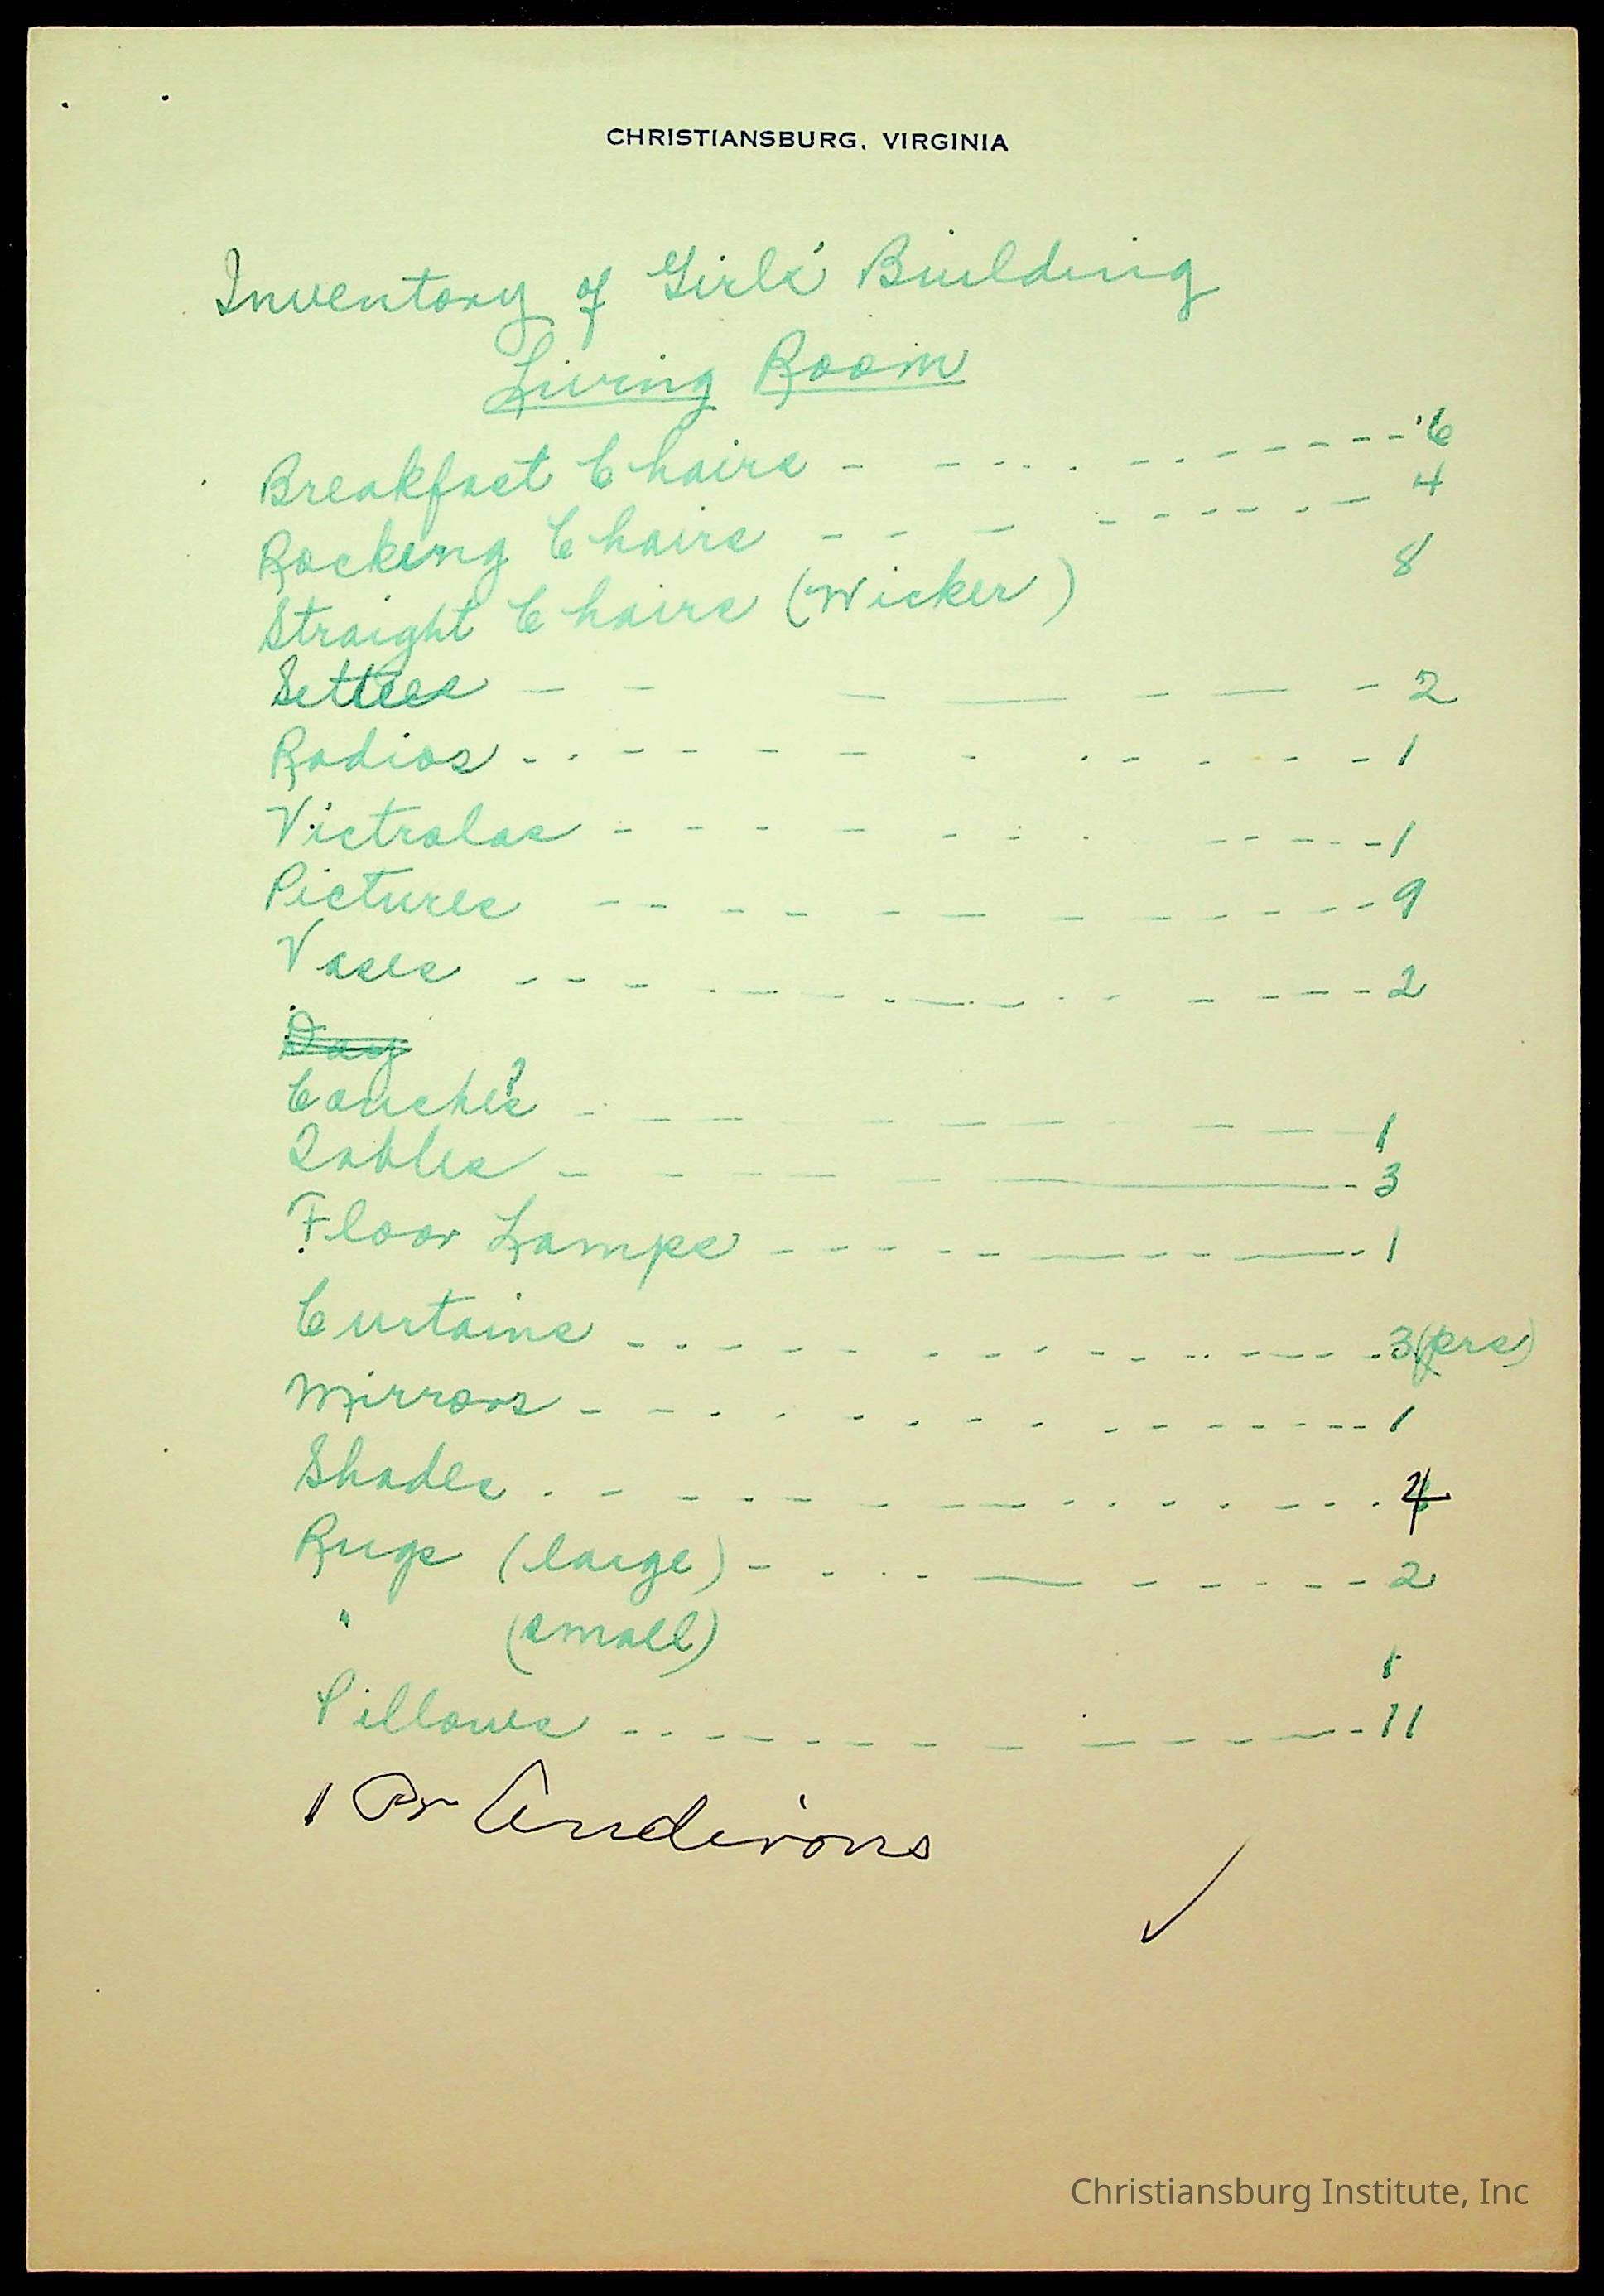 CHRISTIANSBURG, VIRGINIA
Inventory of Girls' Building
Living Room
Breakfast Chairs - - - - - - - - 6
Rocking Chairs - - - - - - - - 4
Straight Chairs (Wicker) 8
Settees - - - - - - - 2
Radios - - - - - - - - 1
Victrolas - - - - - - - - 1
Pictures - - - - - - - - 9
Vases - - - - - - - - 2
Day
Couches - - - - - - - - 1
Tables - - - - - - 3
Floor Lamps - - - - - - - - 1
Curtains - - - - - - - - 3 (prs)
Mirrors - - - - - - - - 1
Shades - - - - - - - - 4
Rugs (large) - - - - - - - - 2
" (small) 1
Pillows - - - - - - - - 11
1 Pr Andirons
Christiansburg Institute, Inc